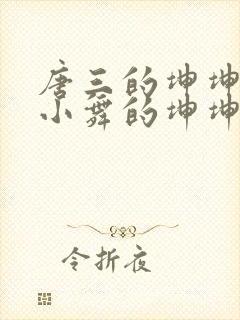 唐三的坤坤
小舞的坤坤
令折夜